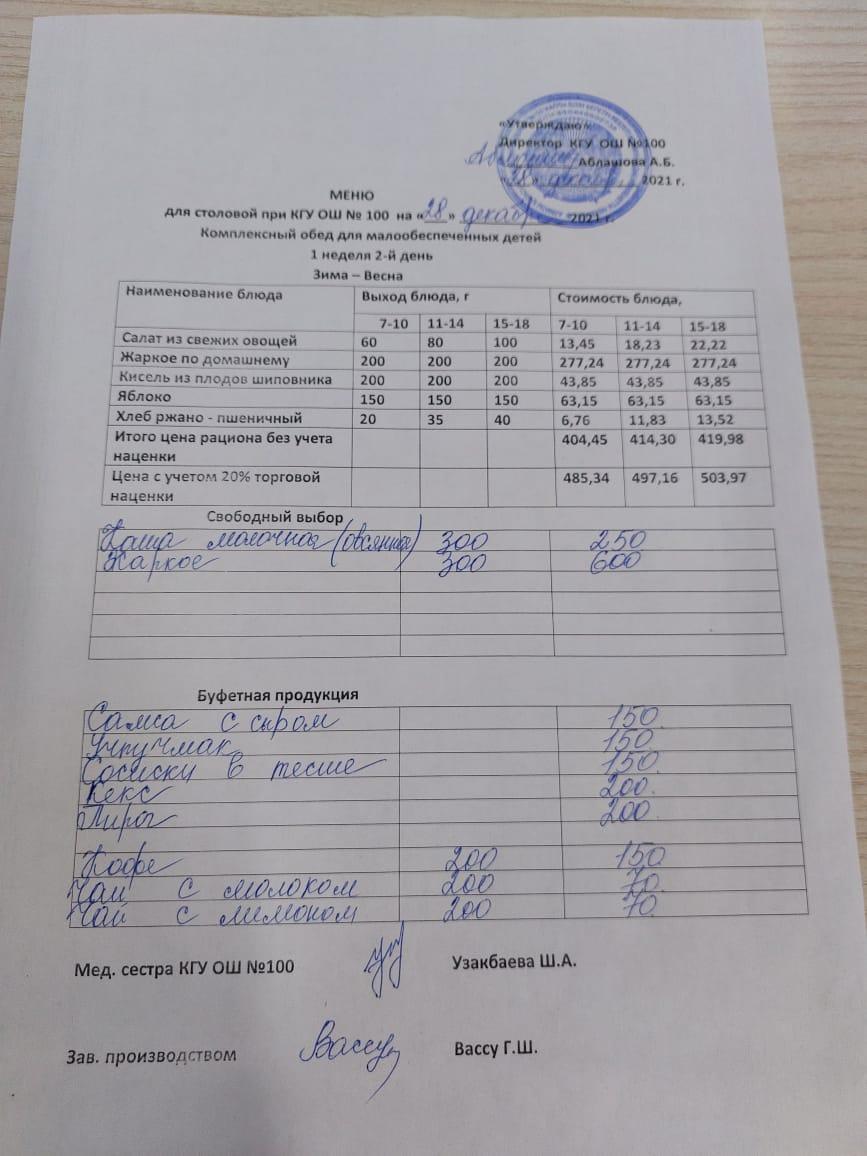 «Утверждаю»
Директор КГУ ОШ №100
Аблашова А.Б.
«28» декабрь 2021 г.
МЕНЮ
для столовой при КГУ ОШ № 100 на «28» декабрь 2021 г.
Комплексный обед для малообеспеченных детей
1 неделя 2-й день
Зима – Весна
Наименование блюда Выход блюда, г Стоимость блюда,
7-10 11-14 15-18 7-10 11-14 15-18
Салат из свежих овощей 60 80 100 13,45 18,23 22,22
Жаркое по домашнему 200 200 200 277,24 277,24 277,24
Кисель из плодов шиповника 200 200 200 43,85 43,85 43,85
Яблоко 150 150 150 63,15 63,15 63,15
Хлеб ржано - пшеничный 20 35 40 6,76 11,83 13,52
Итого цена рациона без учета
наценки 404,45 414,30 419,98
Цена с учетом 20% торговой
наценки 485,34 497,16 503,97
Свободный выбор
Каша молочная (овсянная) 300 250
Жаркое 300 600
Буфетная продукция
Самса с сыром 150
Учпучмак 150
Сосиски в тесте 150
Кекс 200
Пирог 200
Кофе 200 150
Чай с молоком 200 70
Чай с лимоном 200 70
Мед. сестра КГУ ОШ №100 Узакбаева Ш.А.
Зав. производством Вассу Вассу Г.Ш.